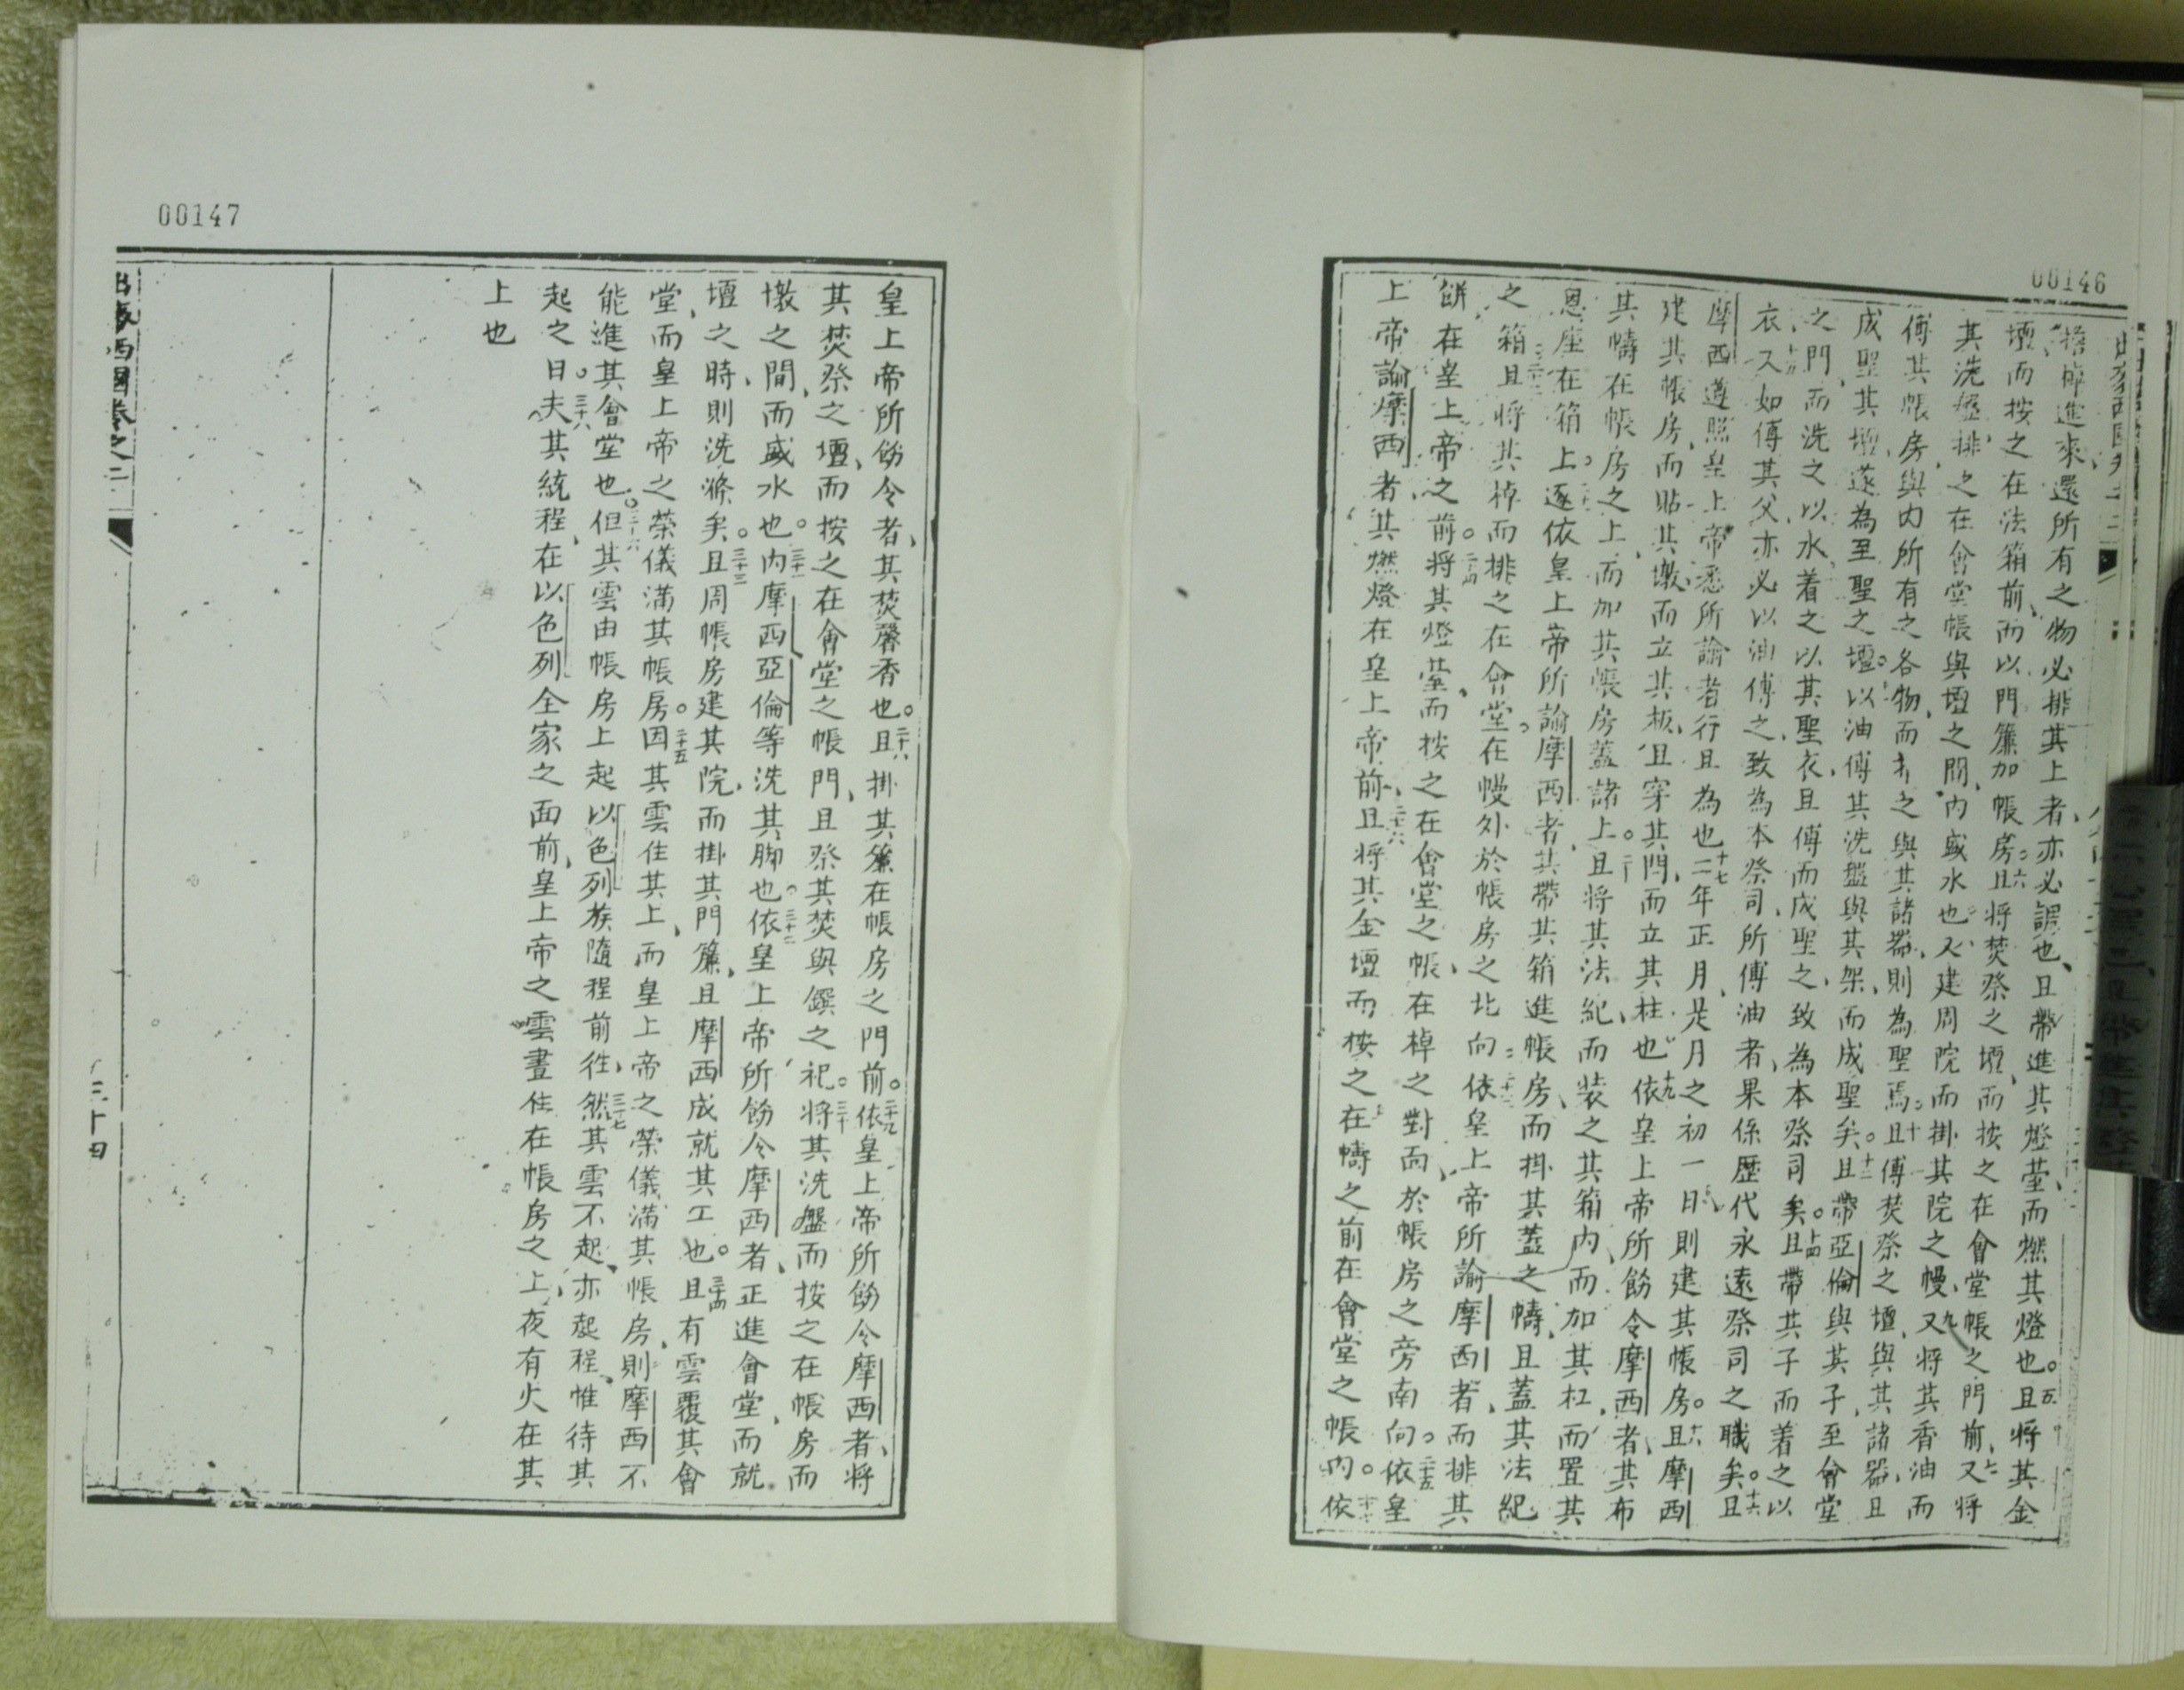 00146
擔棹進來還所有之物必排其上者亦必調也且帶進其燈䑓而燃其燈也五且將其金
壇而按之在法箱前而以門簾加帳房六且將焚祭之壇而按之在會堂帳之門前七又將
其洗盤排之在會堂帳與壇之間內盛水也又建周院而掛其院之幔九又將其香油而
傅其帳房與內所有之各物而之與其諸器則為聖焉十且傅焚祭之壇與其諸器且
成聖其壇遂為至聖之壇以油傅其洗盤與其架而成聖矣十二且帶亞倫與其子至會堂
之門而洗之以水着之以其聖衣且傅而成聖之致為本祭司矣十四且帶其子而着之以
衣十五又如傅其父亦必以油傅之致為本祭司所傅油者果係歷代永遠祭司之職矣十六且
摩西遵照皇上帝悉所諭者行且為也十七二年正月是月之初一日則建其帳房十八且摩西
建其帳房而貼其墩而立其板且穿其閂而立其柱也十九依皇上帝所飭令摩西者其布
其幬在帳房之上而加其帳房蓋諸上二十且將其法紀而裝之其箱內而加其杠而置其
恩座在箱上遂依皇上帝所諭摩西者其帶其箱進帳房而掛其蓋之幬且蓋其法紀
之箱且將其棹而排之在會堂在幔外於帳房之北向依皇上帝所諭摩西者而排其
餅在皇上帝之前二十四將其燈䑓而按之在會堂之帳在棹之對面於帳房之旁南向二十五依皇
上帝諭摩西者其燃燈在皇上帝前二十六且將其金壇而按之在幬之前在會堂之帳內依
00147
皇上帝所飭令者其焚馨香也二十八且掛其簾在帳房之門前二十九依皇上帝所飭令摩西者將
其焚祭之壇而按之在會堂之帳門且祭其焚與饌之祀三十將其洗盤而按之在帳房而
墩之間而盛水也三十一內摩西亞倫等洗其脚也三十二依皇上帝所飭令摩西者正進會堂而就
壇之時則洗滌矣三十三且周帳房建其院而掛其門簾且摩西成就其工也三十四且有雲覆其會
堂而皇上帝之榮儀滿其帳房三十五因其雲住其上而皇上帝之榮儀滿其帳房則摩西不
能進其會堂也三十六但其雲由帳房上起以色列族隨程前徃三十七然其雲不起亦起程惟待其
起之日三十八夫其統程在以色列全家之面前皇上帝之雲晝住在帳房之上夜有火在其
上也
三十四